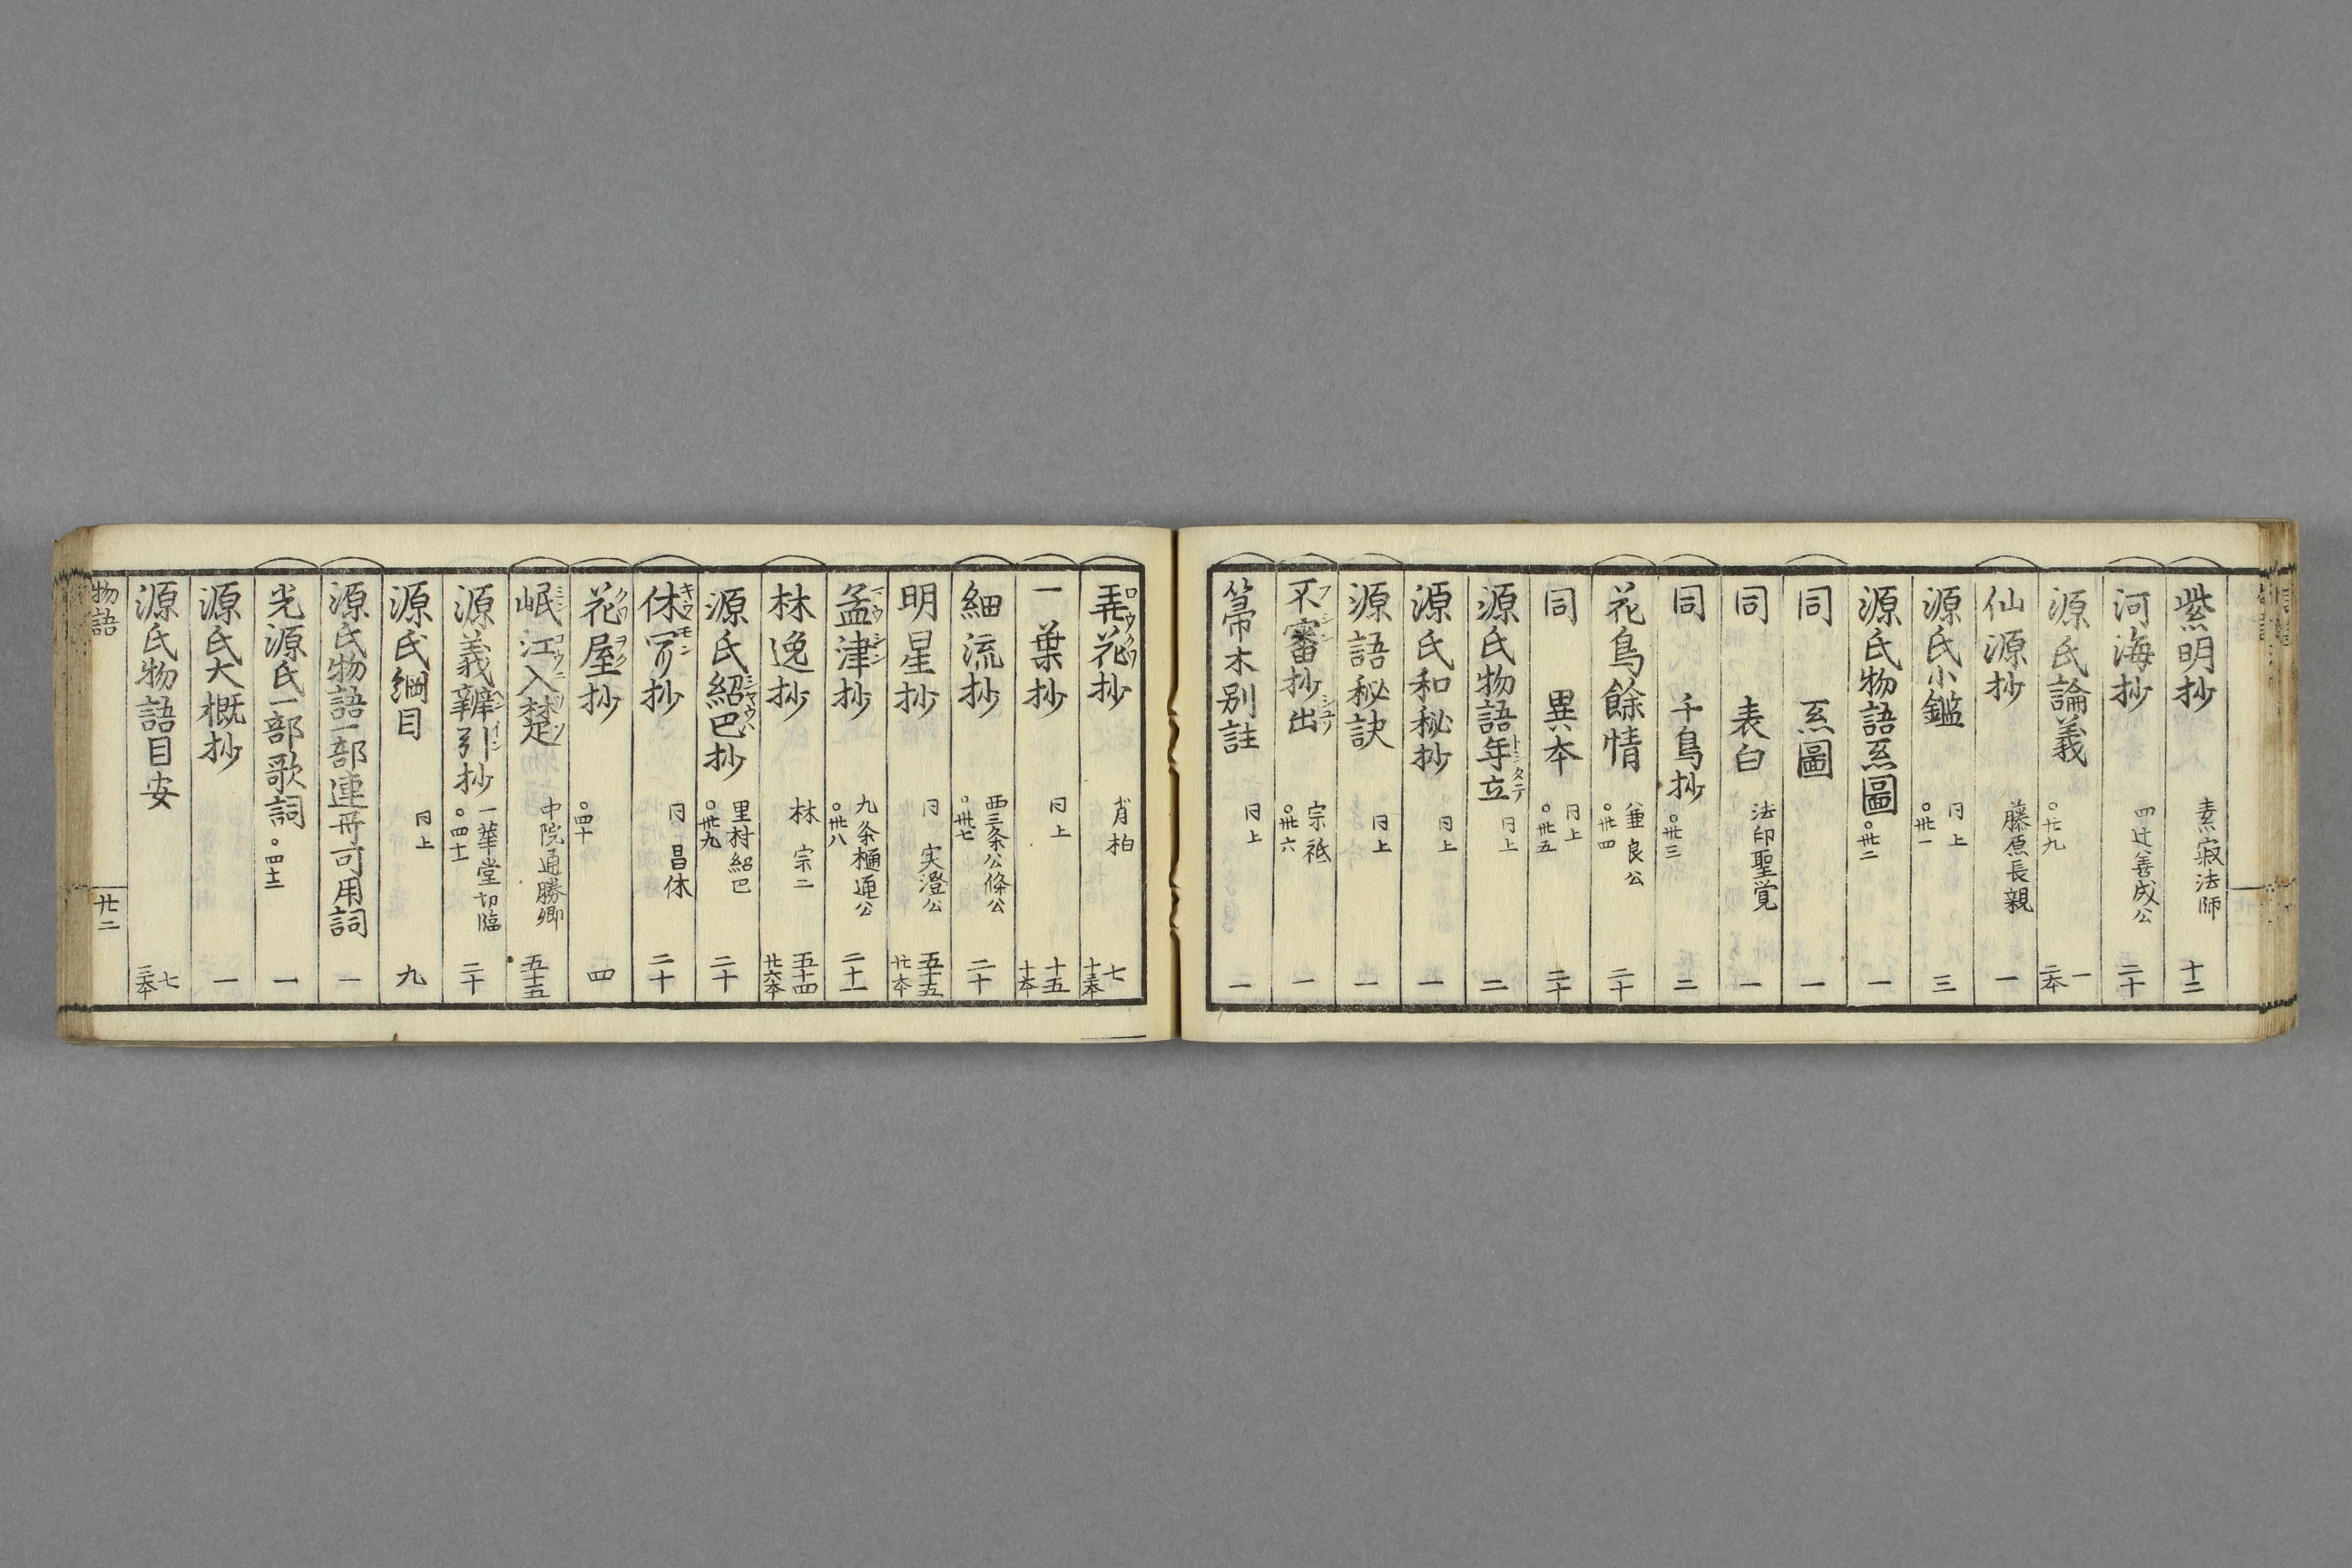 紫明抄 素寂法師 十二
河海抄 四辻善成公 二十
源氏論義 ○廿九 一 二本
仙源抄 藤原長親 一
源氏小鑑 同上 ○卅一 三
源氏物語系圖 ○卅二 一
同 系圖 一
同 表白 法印聖覚 一
同 千鳥抄 ○卅三 二
花鳥餘情 兼良公 ○卅四 二十
同 異本 同上 ○卅五 二十
源氏物語年立 トシタテ 同上 二
源氏和秘抄 同上 一
源語秘訣 同上 一
不審抄出 フシン シユツ 宗祇 ○卅六 一
箒木別註 同上 一
弄花抄 ロウクワ 肖柏 七 十五本
一葉抄 同上 十五 十本
細流抄 西三条公條公 ○卅七 二十
明星抄 同 実澄公 五十五 廿本
孟津抄 マウシン 九条植通公 ○卅八 二十一
林逸抄 林宗二 五十四 廿六本
源氏紹巴抄 シヤウハ 里村紹巴 ○卅九 二十
休聞抄 キウモン 同昌休 二十
花屋抄 クワヲク ○四十 四
岷江入楚 ミンコウニツソ 中院通勝卿 五十五
源義辨引抄 ヘンイン 一華堂切臨 ○四十一 二十
源氏綱目 同上 九
源氏物語一部連哥可用詞 一
光源氏一部歌詞 ○四十二 一
源氏大概抄 一
源氏物語目安 七 三本
物語 廿二